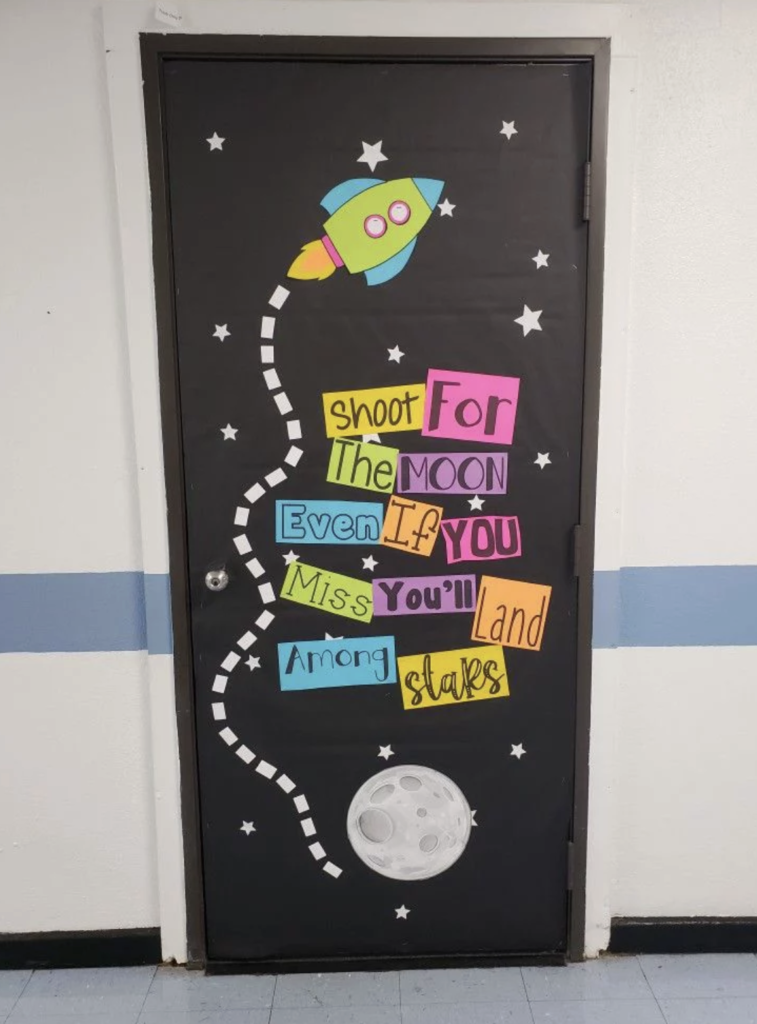 Shoot For
The MOON
Even If YOU
Miss You'll Land
Among staRs